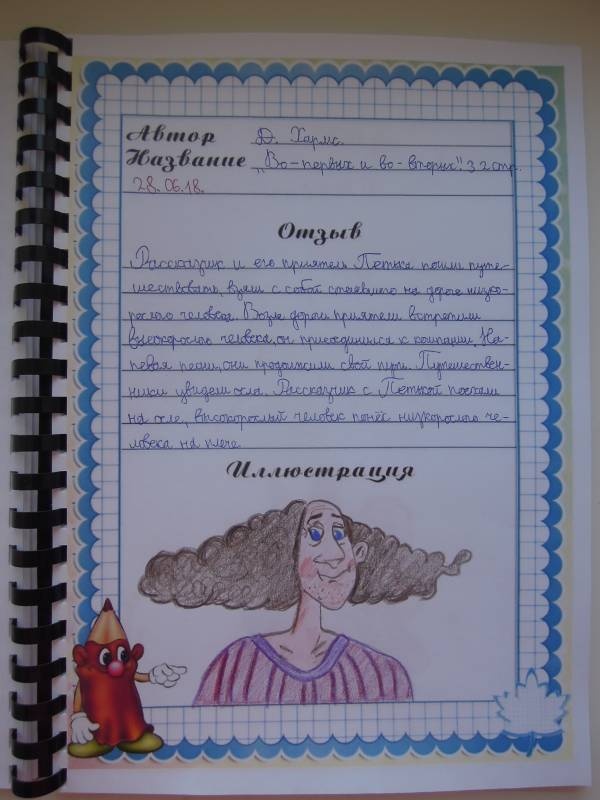 Автор Д. Хармс.
Название „Во-первых и во-вторых". 32 стр.
28.06.18.
Отзыв
Рассказчик и его приятель Петька пошли путе-
шествовать, взяли с собой стоявшего на дороге низко-
рослого человека. Возле дороги приятели встретили
высокорослого человека, он присоединился к компании. На-
певая песни, они продолжили свой путь. Путешествен-
ники увидели осла. Рассказчик с Петькой поехали
на осле, высокорослый человек понёс низкорослого че-
ловека на плече.
Иллюстрация